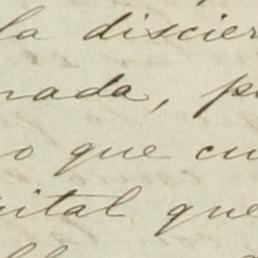 la discier
nada, p
o que cu
ital que